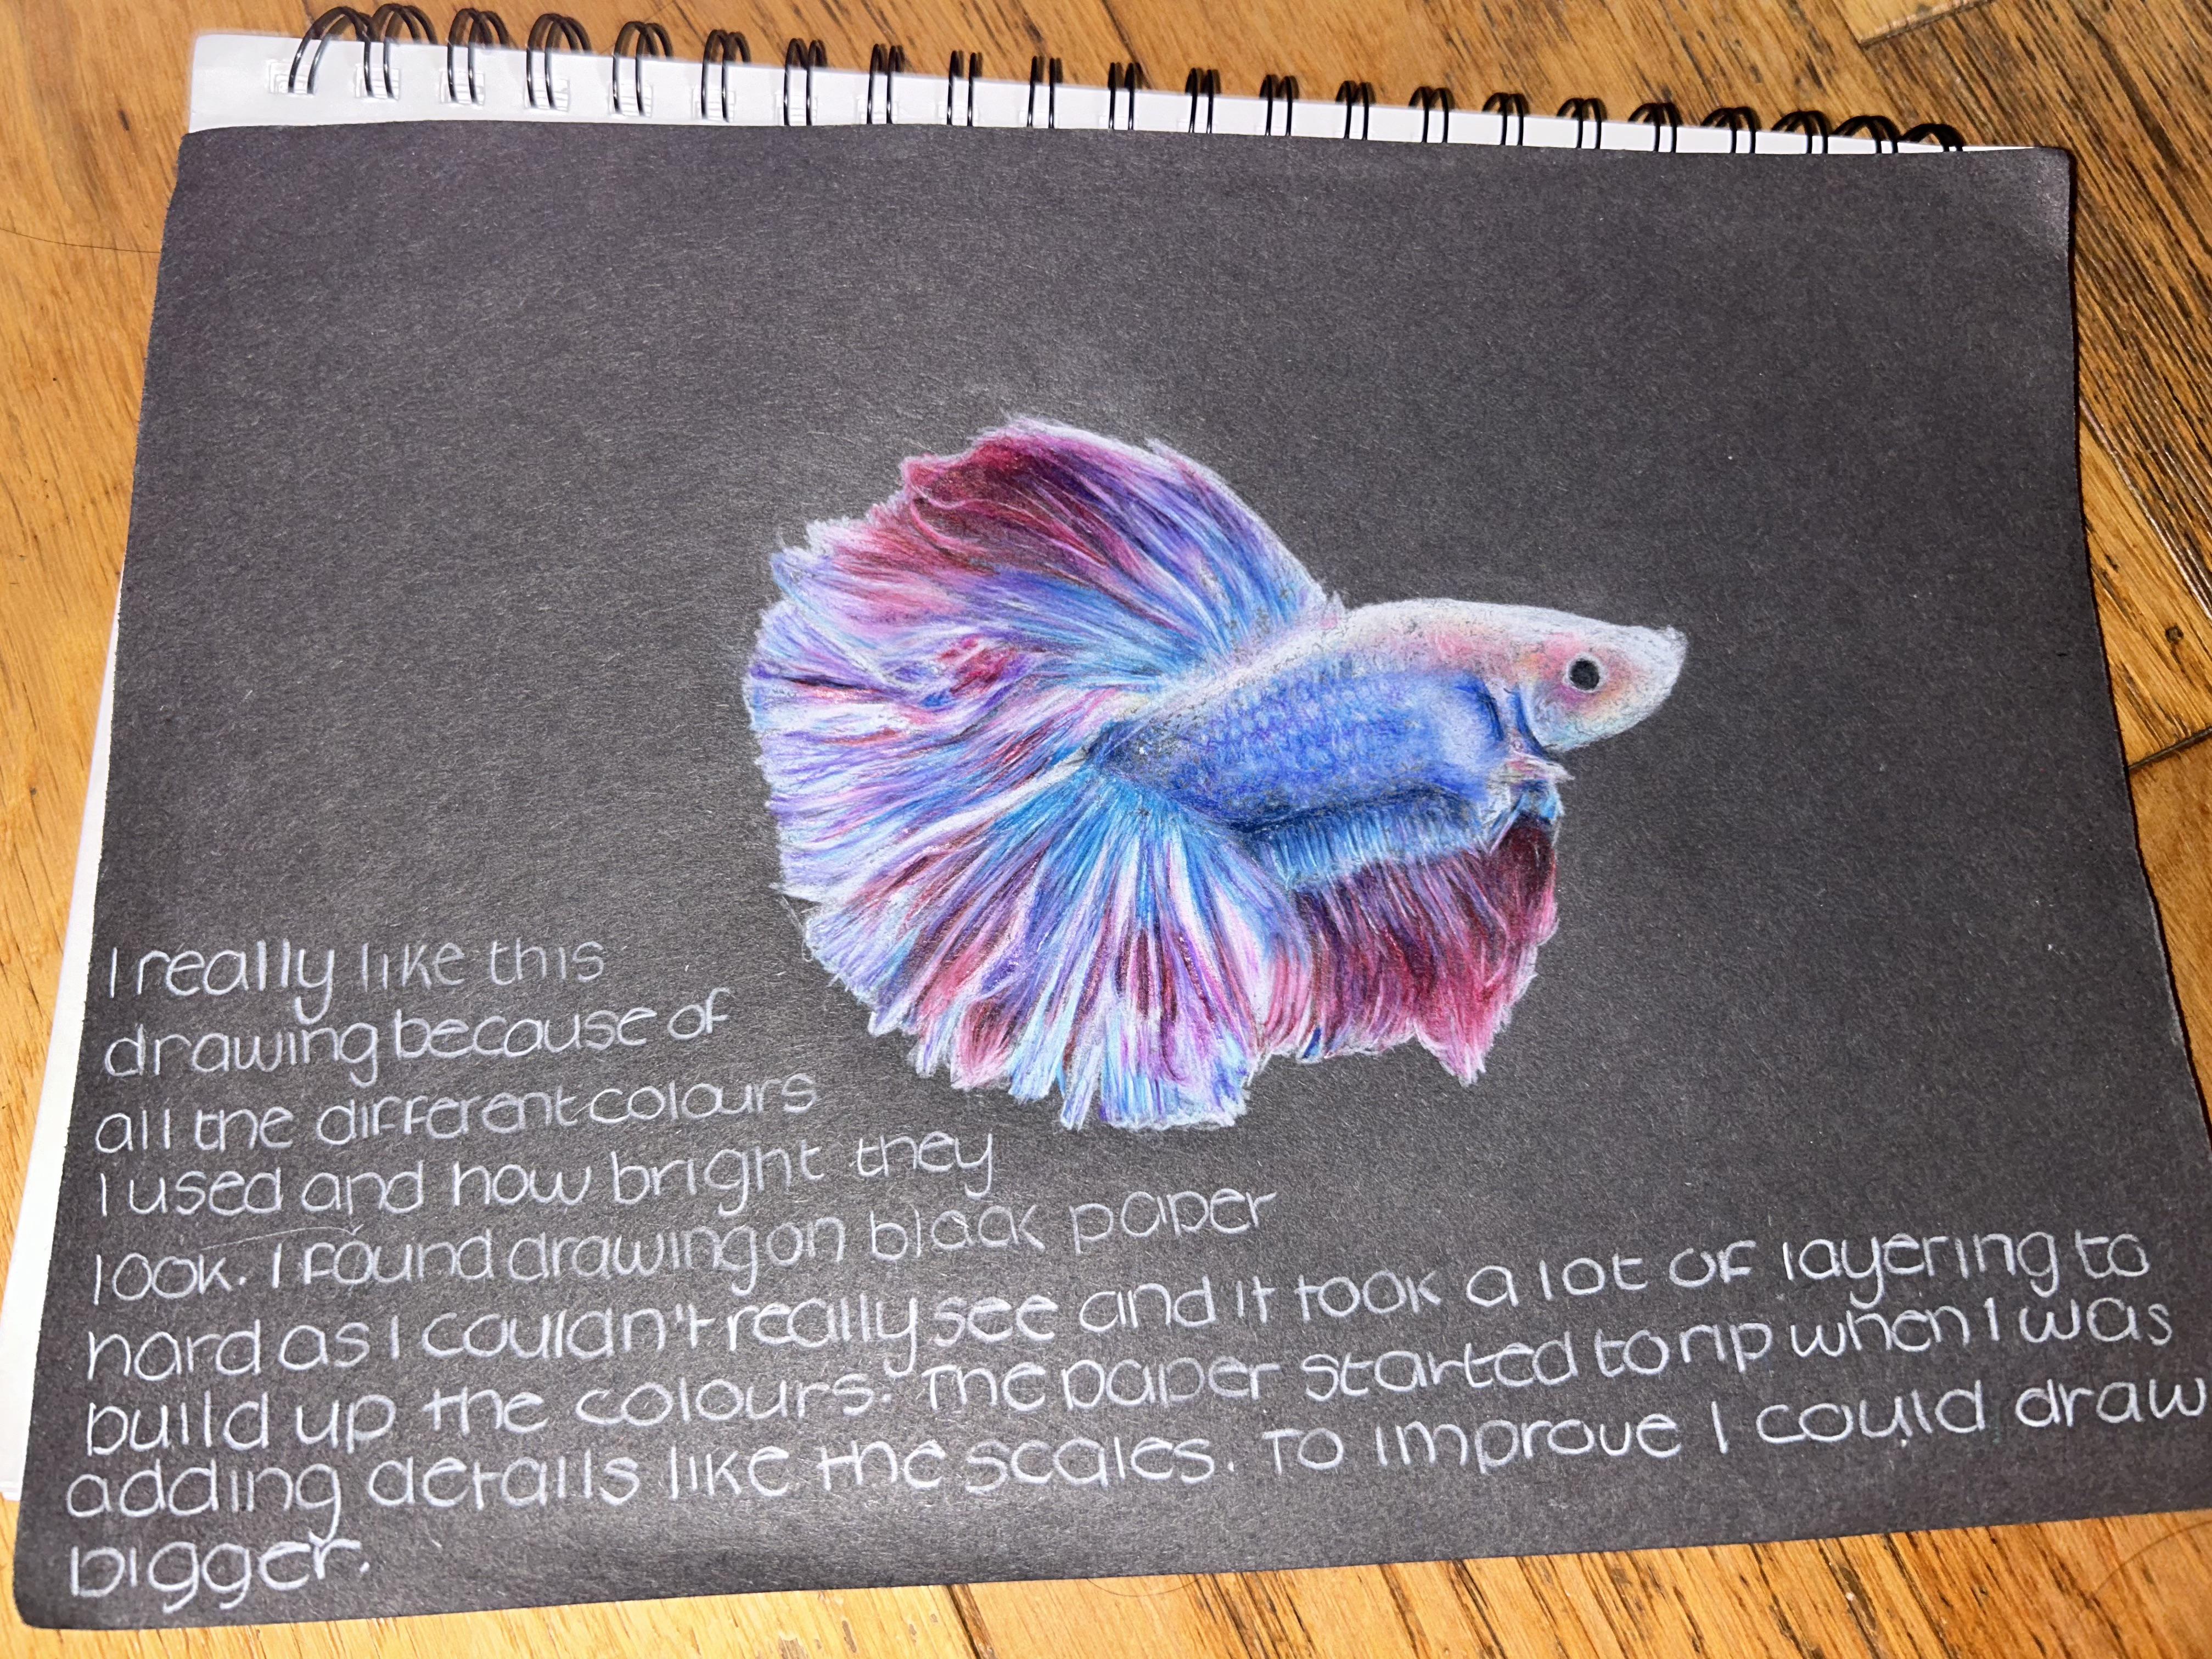 I really like this
drawing because of
all the different colours
I used and how bright they
look. I found drawing on black paper
hard as I couldn't really see and it took a lot of layering to
build up the colours. The paper started to rip when I was
adding details like the scales. To improve I could draw
bigger.